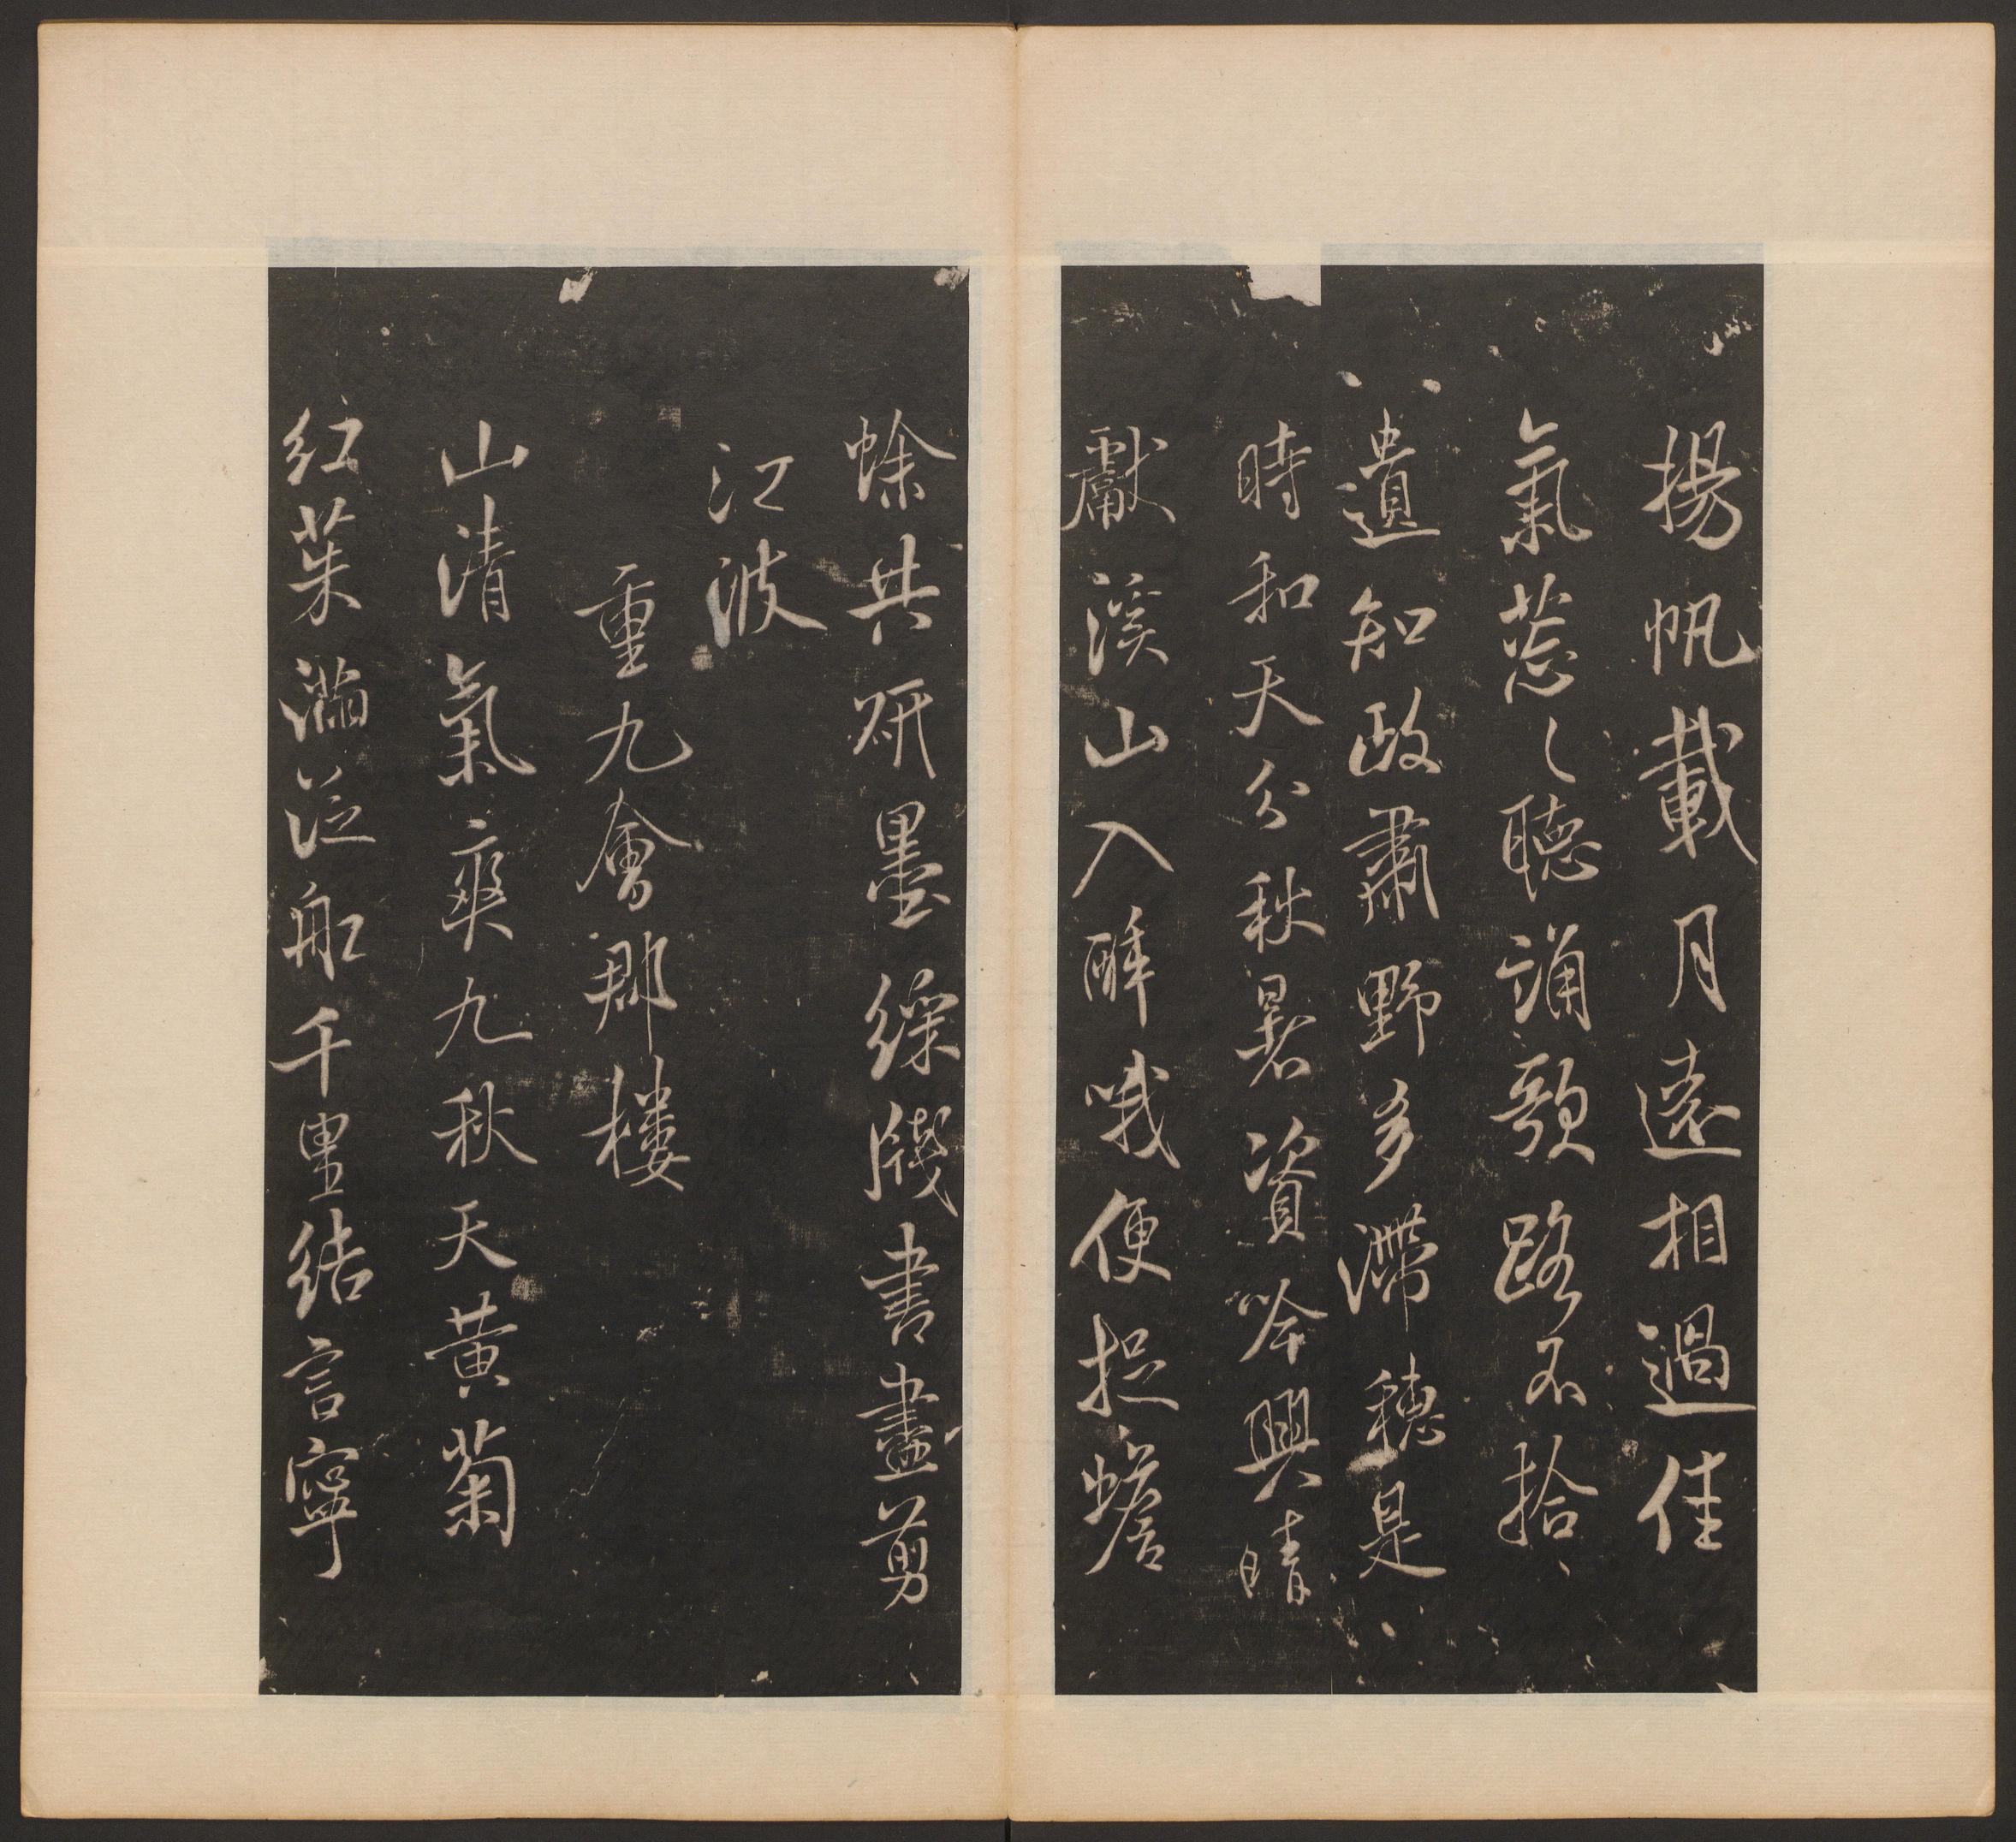 揚帆載月遠相過佳
氣葱〻聽誦歌路不拾
遺知政肅野多滯穗是
時和天分秋暑資吟興晴
獻溪山入醉哦便捉蟾
蜍共研墨綵牋書盡剪
江波
重九會郡樓
山清氣爽九秋天黃菊
紅茱滿泛船千里結言寧